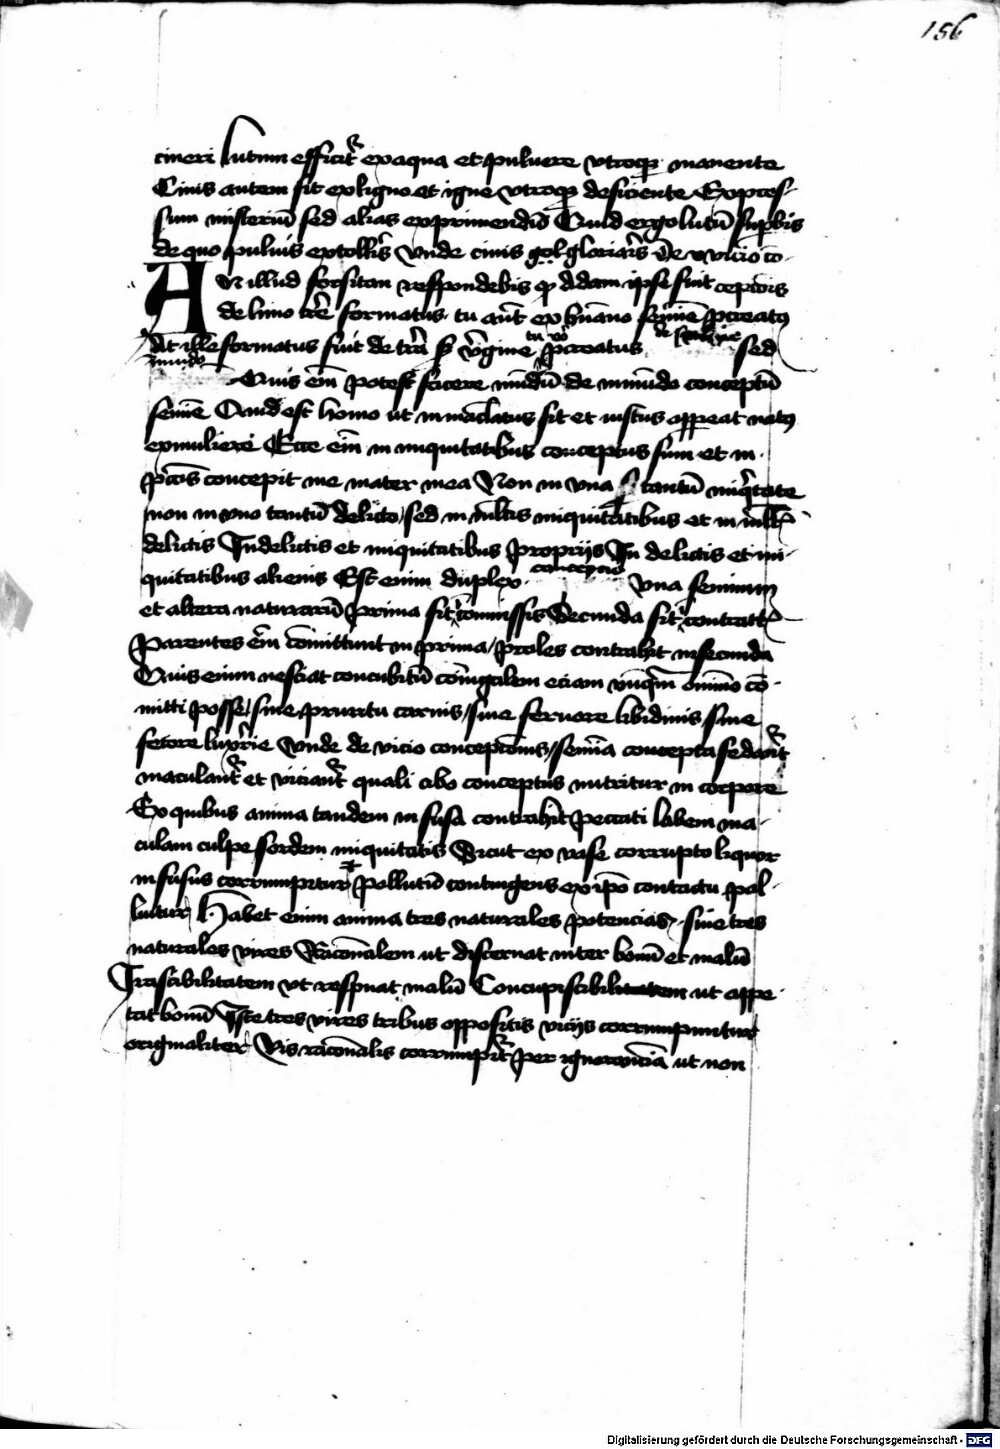 156
cineri lutum efficit᷑ ex aqua et puluere vtroqꝫ manente
Cinis autem fit ex ligno et igne vtroqꝫ deficiente Expres-
sum misteriū sed alias exprimendū Quid ergo lutū supbis
de quo puluis extolleris Vnde cinis gloriaris De vicio co-
AN illud forsitan respondebis qꝫ Adam ipse fuit cepcōis
de limo terre formatus tu aūt ex humano semīe pcreatꝰ
At ille formatus fuit de tr̄a sꝫ v̓gine tu v̓o pcreatus de sed
mundo
Quis em̄ potest facere mūdū de inmundo conceptū
semīe Quid est homo ut inmaculatus sit et iustus appareat natꝰ
ex muliere Ecce em̄ in iniquitatibus conceptus sum et in
pctīs concepit me mater mea Non in vna tantū iniq̓tate
non in vno tantū delicto / sed in multis iniquitatibus et in mult̄
delictis In delictis et iniquitatibus proprijs In delictis et ini-
quitatibus alienis Est enim duplex concepcio Vna seminum
et altera naturarū Prima fit in cōmissis Secunda fit in contract̄
Parentes em̄ cōmittunt in prima / Proles contrahit in secunda
Quis enim nesciat concubitū coniugalem eciam nunq̄m omīno cō-
mitti posse / sine pruritu carnis / sine feruore libidinis / sine
fetore luxurie Vnde de vicio concepcōnis / semīa concepta fedant᷑
maculant᷑ et viciant᷑ quali cibo conceptus nutritur in corpore
Ex quibus anima tandem infusa contrahit peccati labem ma-
culam culpe sordem iniquitatis Sicut ex vase corrupto liquor
infusus corrumpitur / Pollutū contingens ex ipō contactu pol-
luitur Habet enim anima tres naturales potencias / siue tres
naturales vires Racōnalem ut discernat inter bonū et malū
Irascibilitatem vt respuat malū Concupiscibilitatem ut appe-
tat bonū Iste tres vires tribus oppositis vicijs corrumpuntur
originaliter Vis racōnalis corrumpit᷑ per ignoranciā ut non
Digitalisierung gefördert durch die Deutsche Forschungsgemeinschaft - DFG